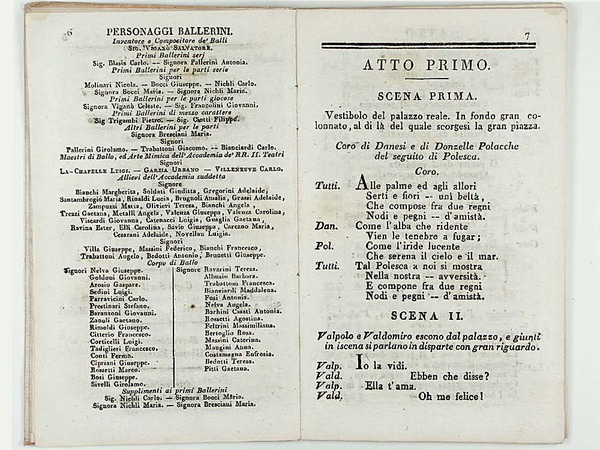 6
PERSONAGGI BALLERINI.
Inventore e Compositore de' Balli
SIG. VIGANÒ SALVATORE.
Primi Ballerini serj
Sig. Blasis Carlo. — Signora Pallerini Antonia.
Primi Ballerini per le parti serie
Signori
Molinari Nicola. — Bocci Giuseppe. — Nichli Carlo.
Signora Bocci Maria. — Signora Nichli Maria.
Primi Ballerini per le parti giocose
Signora Viganò Celeste. — Sig. Franzolini Giovanni.
Primi Ballerini di mezzo carattere
Sig. Trigambi Pietro. — Sig. Ciotti Filippo.
Altri Ballerini per le parti
Signora Bresciani Maria.
Signori
Pallerini Girolamo. — Trabattoni Giacomo. — Bianciardi Carlo.
Maestri di Ballo, ed Arte Mimica dell'Accademia de' RR. II. Teatri
Signori
LA-CHAPELLE LUIGI. — GARZIA URBANO — VILLENEUVE CARLO.
Allievi dell'Accademia suddetta
Signore
Bianchi Margherita, Soldati Giuditta, Gregorini Adelaide,
Santambrogio Maria, Rinaldi Lucia, Brugnoli Amalia, Grassi Adelaide,
Zampuzzi Maria, Olivieri Teresa, Bianchi Angela,
Trezzi Gaetana, Metalli Angela, Valenza Giuseppa, Valenza Carolina,
Viscardi Giovanna, Catenacci Luigia, Guaglia Gaetana,
Ravina Ester, Elli Carolina, Savio Giuseppa, Carcano Maria,
Cesarani Adelaide, Novellau Luigia.
Signori
Villa Giuseppe, Massini Federico, Bianchi Francesco,
Trabattoni Angelo, Bedotti Antonio, Brunetti Giuseppe.
Corpo di Ballo
Signori Nelva Giuseppe.
Goldoni Giovanni.
Arosio Gaspare.
Sedini Luigi.
Parravicini Carlo.
Prestinari Stefano.
Baranzoni Giovanni.
Zanoli Gaetano.
Rimoldi Giuseppe.
Citterio Francesco.
Corticelli Luigi.
Tadiglieri Francesco.
Conti Fermo.
Cipriani Giuseppe.
Rossetti Marco.
Bosi Giuseppe.
Sivelli Girolamo.
Signore Ravarini Teresa.
Albuzio Barbara.
Trabattoni Francesca.
Bianciardi Maddalena.
Fusi Antonia.
Nelva Angela.
Barbini Casati Antonia.
Rossetti Agostina.
Feltrini Massimiliana.
Bertoglio Rosa.
Massini Caterina.
Mangini Anna.
Costamagna Eufrosia.
Bedotti Teresa.
Pitti Gaetana.
Supplimenti ai primi Ballerini
Sig. Nichli Carlo. — Signora Bocci Maria.
Signora Nichli Maria. — Signora Bresciani Maria.
7
ATTO PRIMO.
SCENA PRIMA.
Vestibolo del palazzo reale. In fondo gran co-
lonnato, al di là del quale scorgesi la gran piazza.
Coro di Danesi e di Donzelle Polacche
del seguito di Polesca.
Coro.
Tutti. Alle palme ed agli allori
Serti e fiori -- uni beltà,
Che compose fra due regni
Nodi e pegni -- d'amistà.
Dan. Come l'alba che ridente
Vien le tenebre a fugar;
Pol. Come l'iride lucente
Che serena il cielo e il mar.
Tutti. Tal Polesca a noi si mostra
Nella nostra -- avversità.
E compone fra due regni
Nodi e pegni -- d'amistà.
SCENA II.
Valpolo e Valdomiro escono dal palazzo, e giunti
in iscena si parlano in disparte con gran riguardo.
Valp. Io la vidi.
Vald. Ebben che disse?
Valp. Ella t'ama.
Vald. Oh me felice!